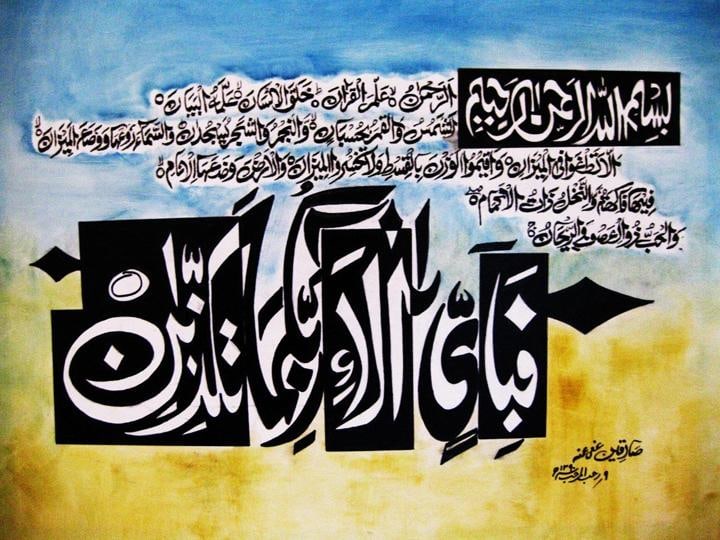 بسم الله الرحمن الرحيم
الرحمن علم القران خلق الانسان علمه البيان
الشمس والقمر بحسبان والنجم والشجر يسجدن والسماء رفعها ووضع الميزان
الا تطغوا في الميزان واقيموا الوزن بالقسط ولا تخسروا الميزان والارض وضعها للانام
فيها فاكهة والنخل ذات الاكمام
والحب ذو العصف والريحان
فَبِاَيِّ اٰلَاءِ رَبِّكُمَا تُكَذِّبٰن
صادقین عفی عنہ